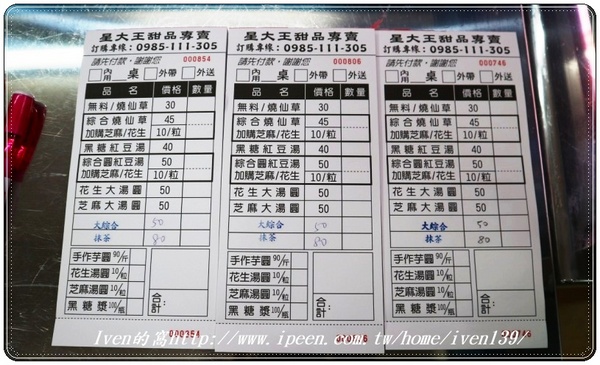 星大王甜品專賣
訂購專線:0985-111-305
請先付款,謝謝您 000854
內用 桌 外帶 外送
品名 價格 數量
無料/燒仙草 30
綜合燒仙草 45
加購芝麻/花生 10/粒
黑糖紅豆湯 40
綜合圓紅豆湯 50
加購芝麻/花生 10/粒
花生大湯圓 50
芝麻大湯圓 50
大綜合 50
抹茶 80
手作芋圓 90/斤
花生湯圓 10/粒
芝麻湯圓 10/粒
黑糖漿 100/瓶
合計:
000854
星大王甜品專賣
訂購專線:0985-111-305
請先付款,謝謝您 000806
內用 桌 外帶 外送
品名 價格 數量
無料/燒仙草 30
綜合燒仙草 45
加購芝麻/花生 10/粒
黑糖紅豆湯 40
綜合圓紅豆湯 50
加購芝麻/花生 10/粒
花生大湯圓 50
芝麻大湯圓 50
大綜合 50
抹茶 80
手作芋圓 90/斤
花生湯圓 10/粒
芝麻湯圓 10/粒
黑糖漿 100/瓶
合計:
星大王甜品專賣
訂購專線:0985-111-305
請先付款,謝謝您 000746
內用 桌 外帶 外送
品名 價格 數量
無料/燒仙草 30
綜合燒仙草 45
加購芝麻/花生 10/粒
黑糖紅豆湯 40
綜合圓紅豆湯 50
加購芝麻/花生 10/粒
花生大湯圓 50
芝麻大湯圓 50
大綜合 50
抹茶 80
手作芋圓 90/斤
花生湯圓 10/粒
芝麻湯圓 10/粒
黑糖漿 100/瓶
合計:
Iven的窩http://www.ipeen.com.tw/home/iven139/